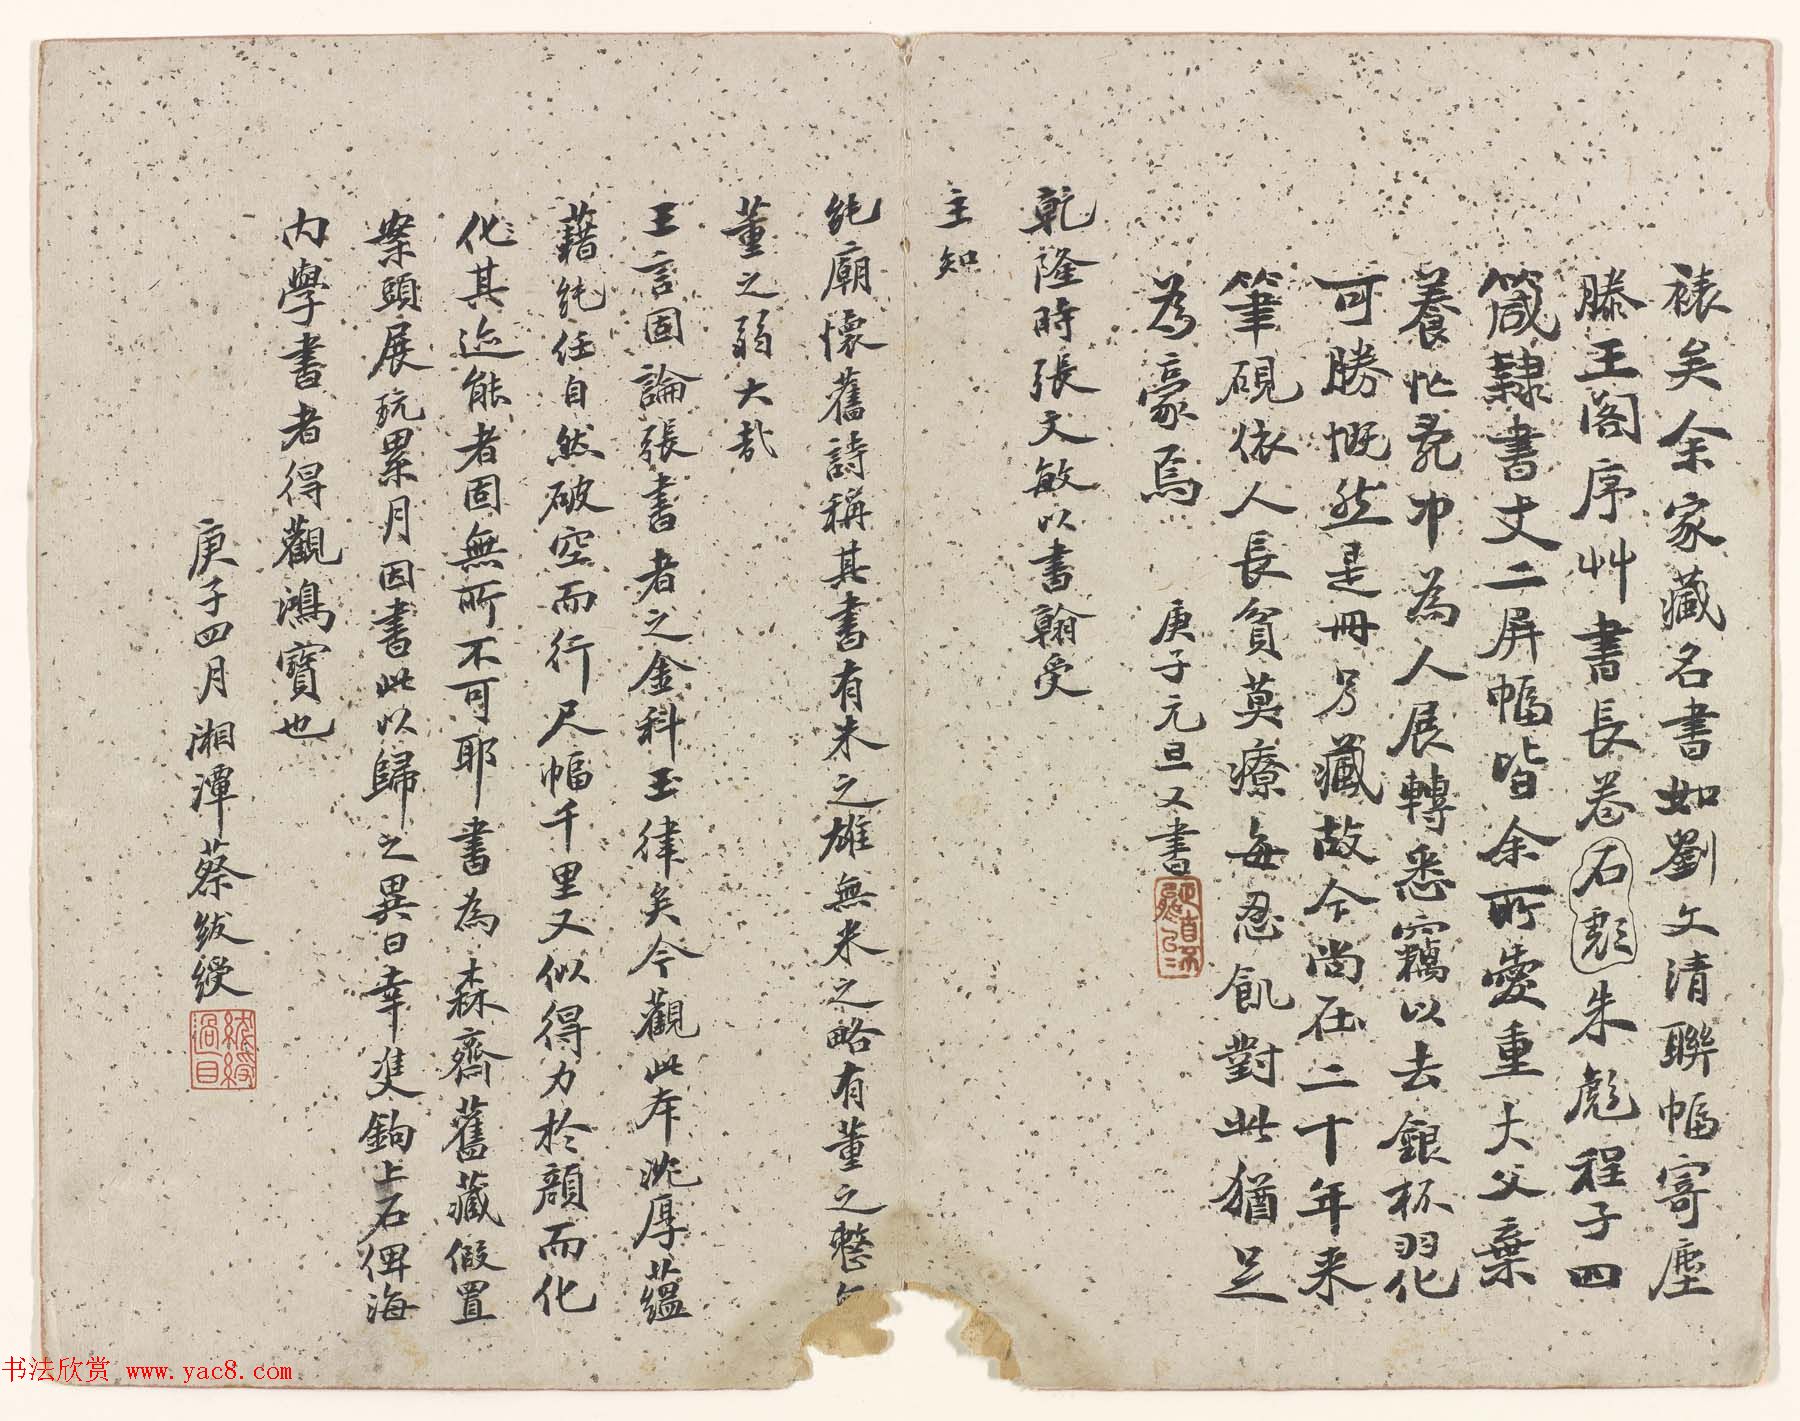 裱矣余家藏名書如劉文清聯幅寄塵
滕王閣序艸書長卷石彪朱彪程子四
箴隸書丈二屏幅皆余所愛重大父棄
養忙亂中為人展轉悉竊以去銀杯羽化
可勝慨然是冊另藏故今尚在二十年來
筆硯依人長貧莫療每忍飢對此猶足
為豪焉 庚子元旦又書
乾隆時張文敏以書翰受
主知
純廟懷舊詩稱其書有米之雄無米之略有董之整無
董之弱大哉
王言固論張書者之金科玉律矣今觀此本沈厚蘊
藉純任自然破空而行尺幅千里又似得力於顏而化
化其迹能者固無所不可耶書為森齋舊藏假置
案頭展玩累月因書此以歸之異日幸雙鉤上石俾海
內學書者得觀鴻寶也
庚子四月湘潭蔡紱綬
紱綬過目
书法欣赏 www.yac8.com